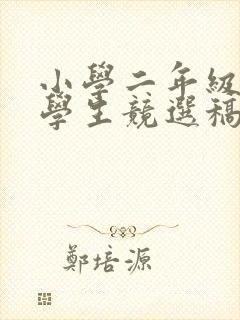 小學二年級
學生競選稿
鄭培源